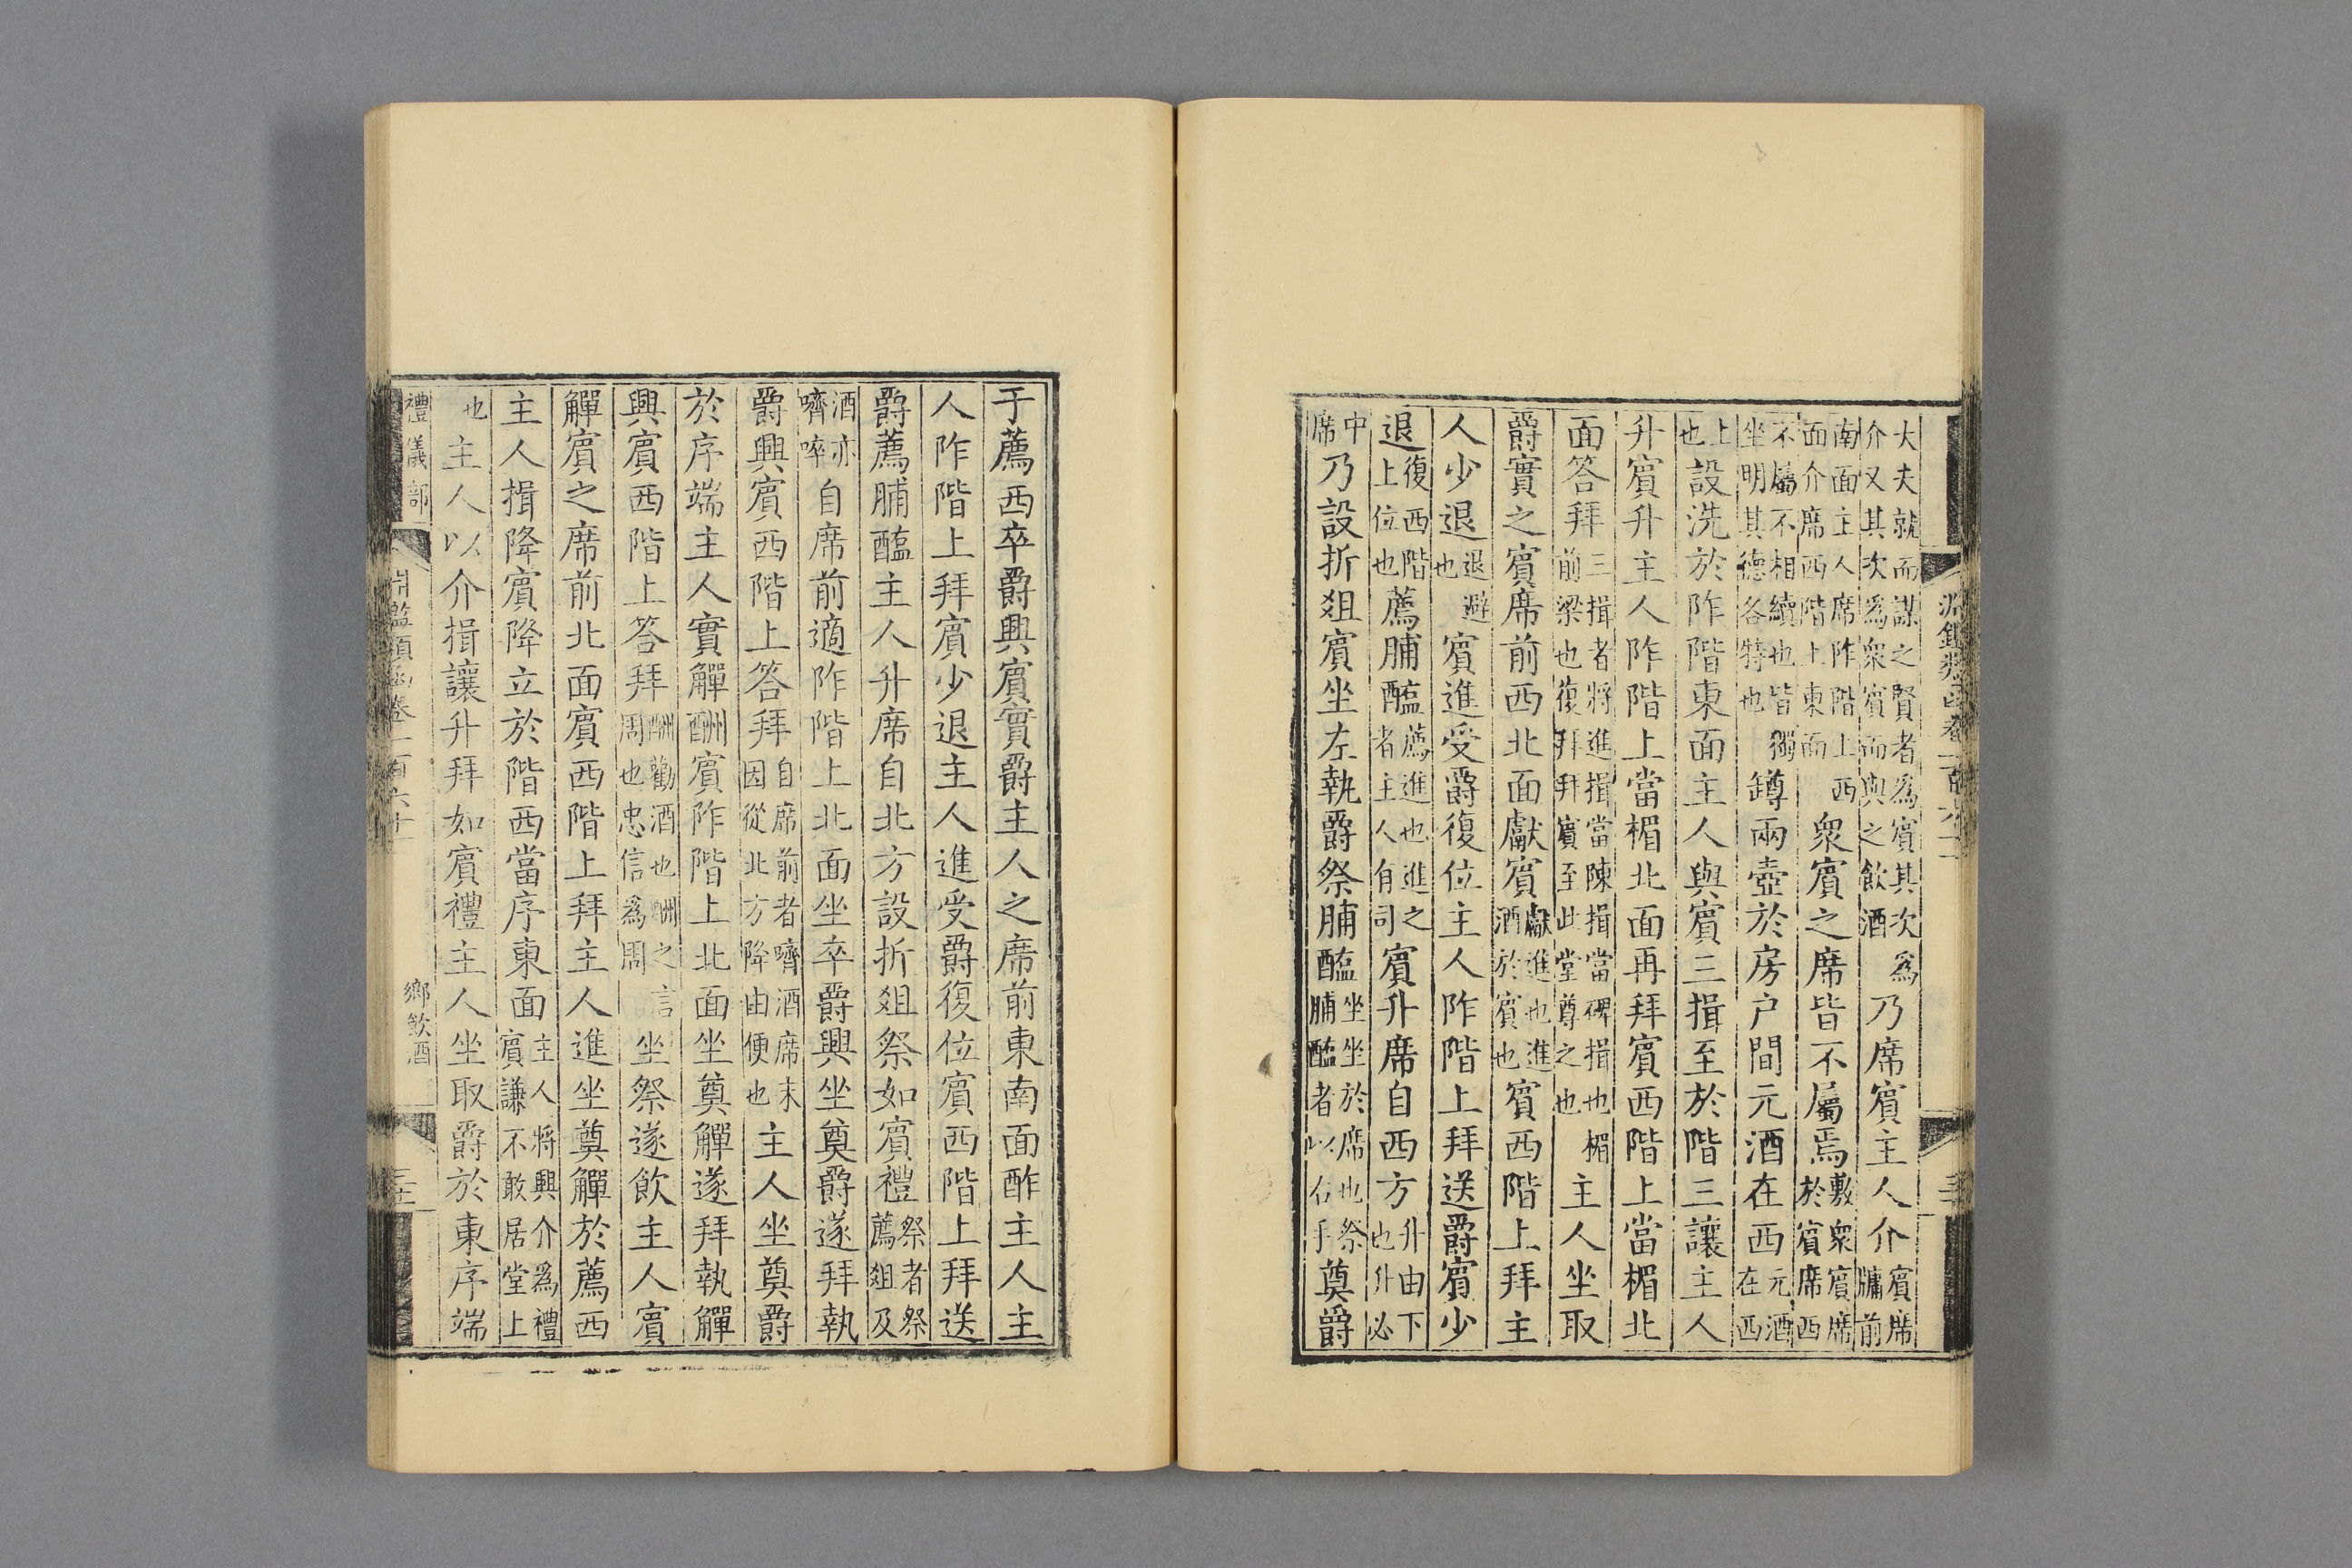 淵鑑類函卷一百六十一
大夫就而謀之賢者為賓其次為介又其次為衆賓而與之飲酒乃席賓主人介賓席牖前
南面主人席阼階上西面介席西階上東面衆賓之席皆不屬焉敷衆賓席於賓席西
不屬不相續也皆獨坐明其德各特也罇兩壺於房户間元酒在西元酒在西
上也設洗於阼階東面主人與賓三揖至於階三讓主人
升賓升主人阼階上當楣北面再拜賓西階上當楣北
面答拜三揖者將進揖當陳揖當碑揖也楣前梁也復拜拜賓至此堂尊之也主人坐取
爵實之賓席前西北面獻賓獻進也進酒於賓也賓西階上拜主
人少退退避也賓進受爵復位主人阼階上拜送爵賓少
退復西階上位也薦脯醢薦進也進之者主人有司賓升席自西方升由下也升必
中席乃設折爼賓坐左執爵祭脯醢坐坐於席也祭脯醢者以右手奠爵
于薦西卒爵興賓實爵主人之席前東南面酢主人主
人阼階上拜賓少退主人進受爵復位賓西階上拜送
爵薦脯醢主人升席自北方設折爼祭如賓禮祭者祭薦爼及
酒亦嚌啐自席前適阼階上北面坐卒爵興坐奠爵遂拜執
爵興賓西階上答拜自席前者嚌酒席末因從北方降由便也主人坐奠爵
於序端主人實觶酬賓阼階上北面坐奠觶遂拜執觶
興賓西階上答拜酬勸酒也酬之言周也忠信為周坐祭遂飲主人賓
觶賓之席前北面賓西階上拜主人進坐奠觶於薦西
主人揖降賓降立於階西當序東面主人將興介為禮賓謙不敢居堂上
也主人以介揖讓升拜如賓禮主人坐取爵於東序端
禮儀部 淵鑑類函卷一百六十一 鄉飲酒